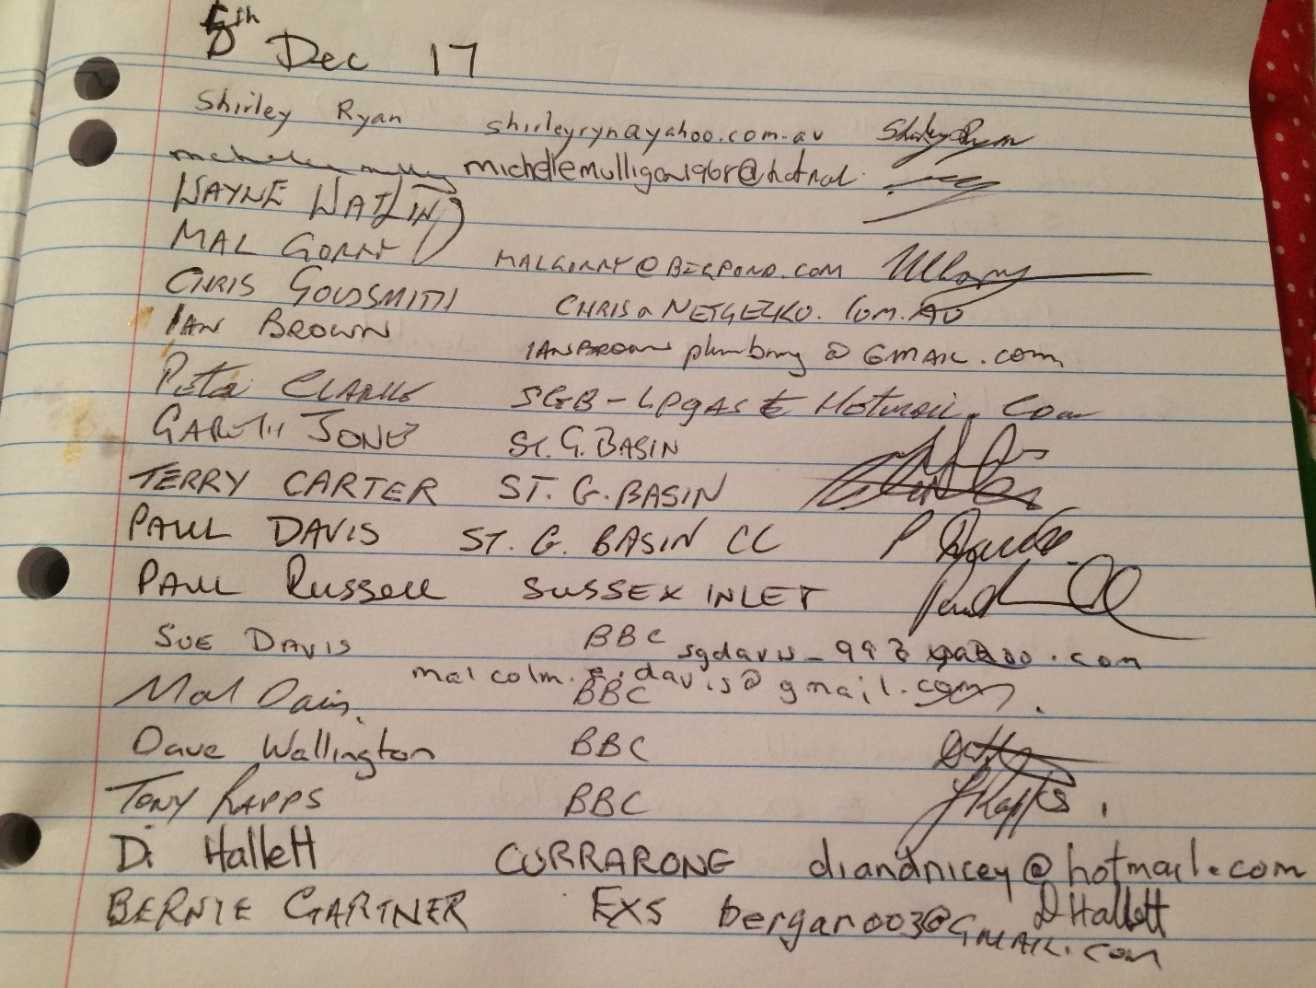 5th Dec 17
Shirley Ryan shirleyryn@yahoo.com.au Shirley Ryan
michellemulligan1968@hotmal.
WAYNE WATLING
MAL GORRY MALGORRY@BIGPOND.COM
CHRIS GOLDSMITH CHRIS@NETGEZKO.COM.AU
IAN BROWN IANBROWN plumbing @ GMAIL.com
Peta CLARKE SGB-LPGAS@Hotmail.com
GARETH JONES ST. G. BASIN
TERRY CARTER ST. G. BASIN
PAUL DAVIS ST. G. BASIN CC P Davis
PAUL Russell SUSSEX INLET
SUE DAVIS BBC sgdavis_99@yahoo.com
malcolm.e.davis@gmail.com
Mal Davis BBC
Dave Wallington BBC
TONY RAPPS BBC TRapps
Di Hallett CURRARONG diandnicey@hotmail.com
D Hallett
BERNIE GARTNER EXS bergar003@GMAIL.com